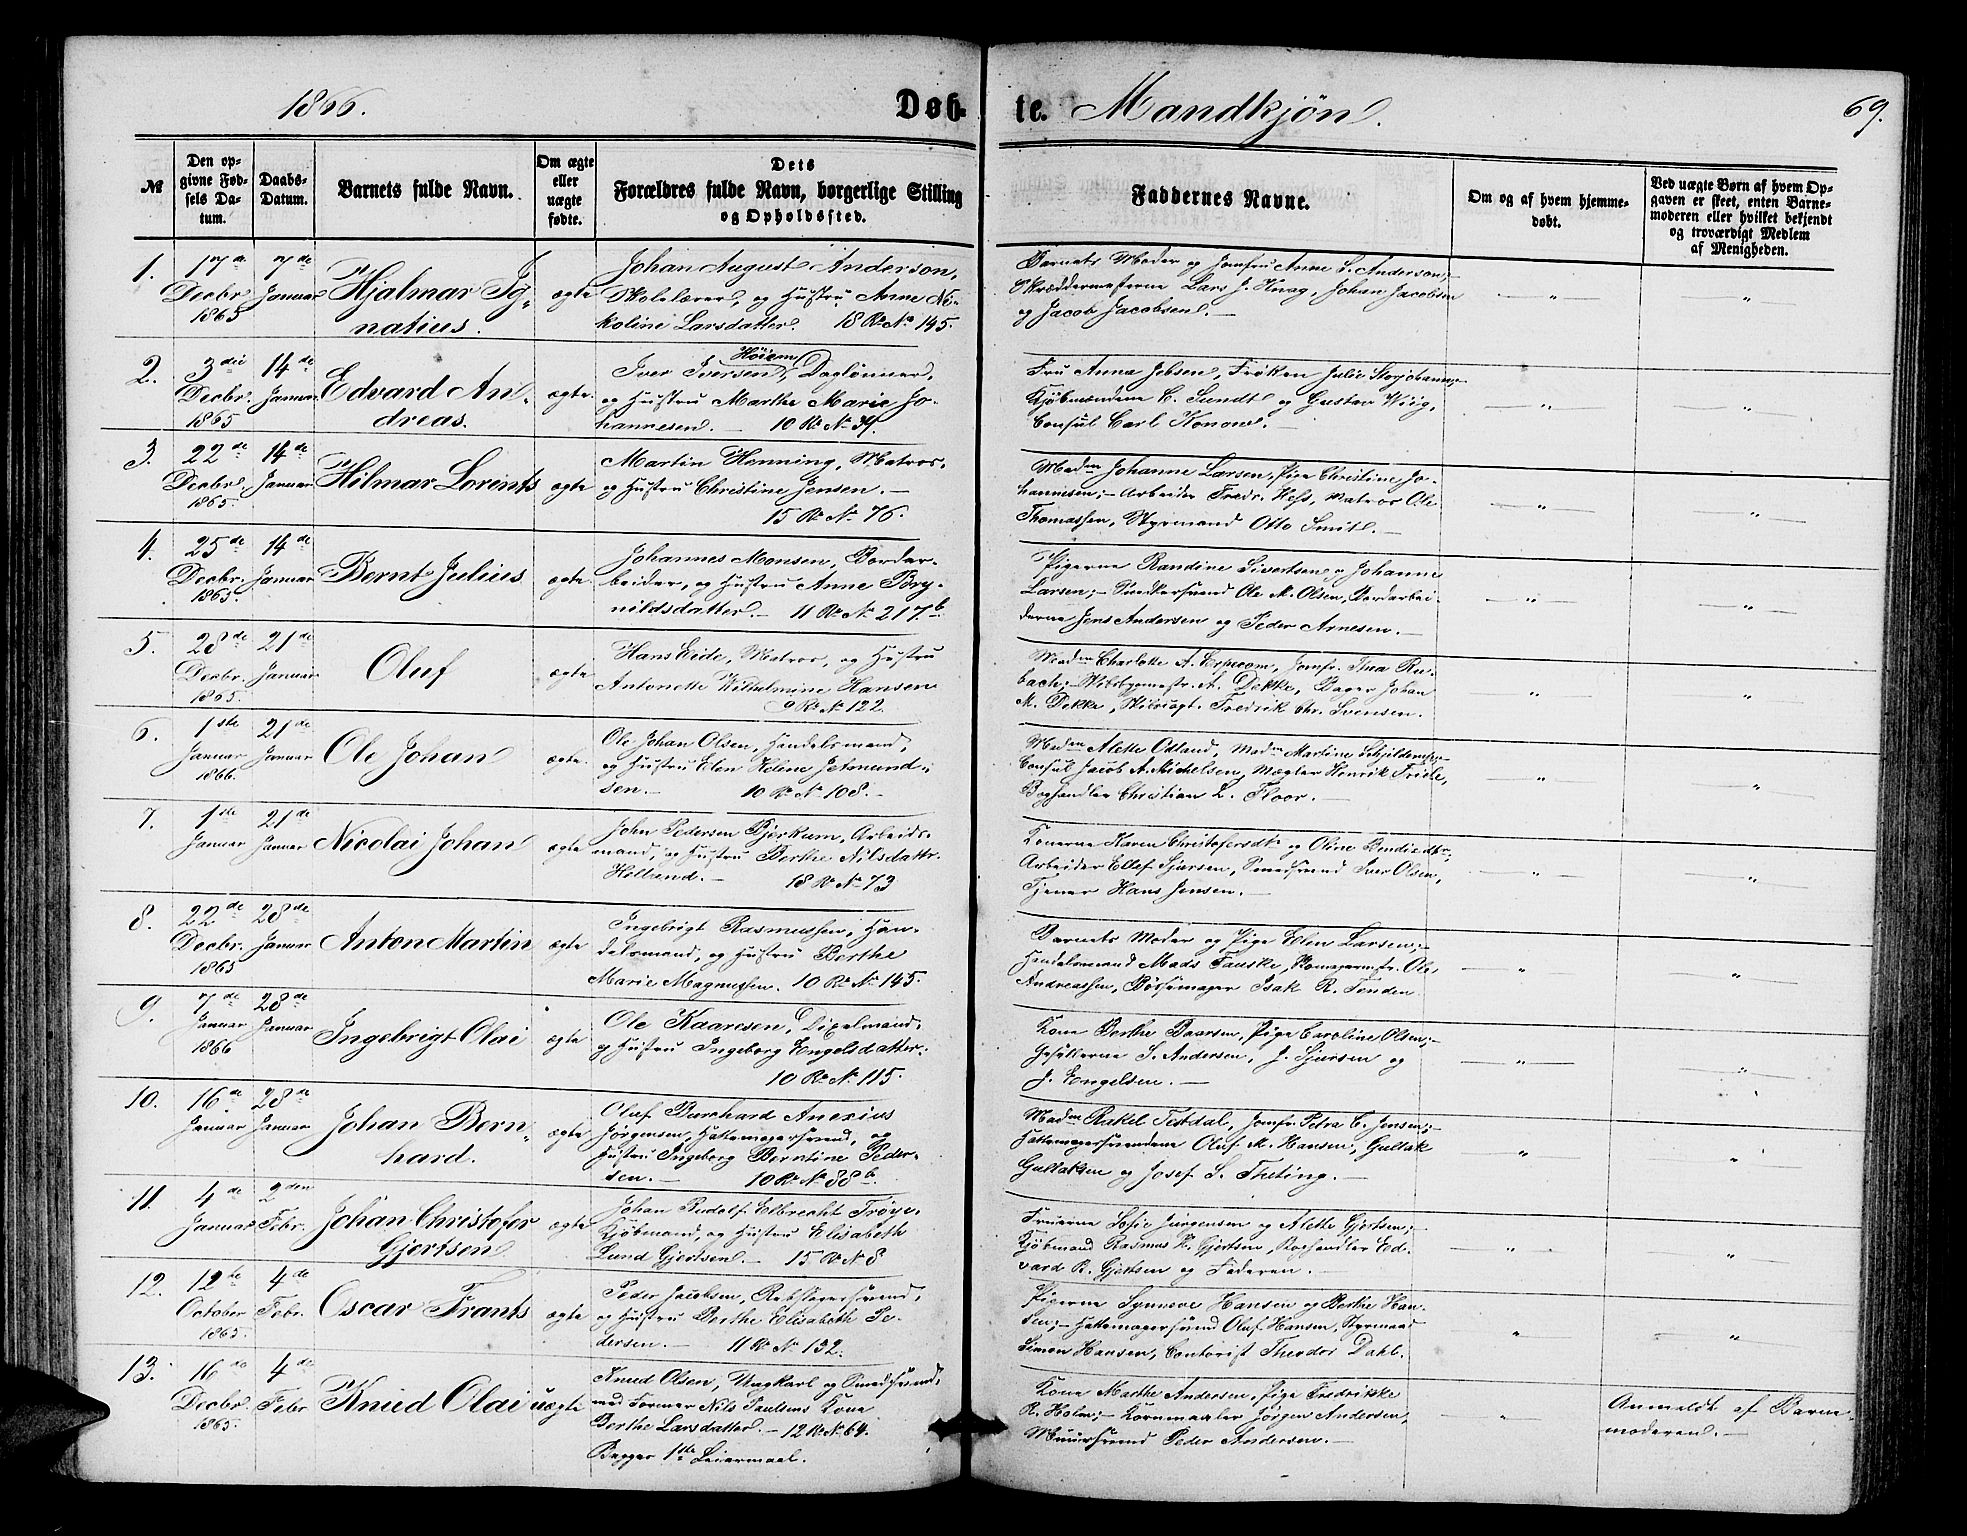 1866.
Døb-
te. Mandkjøn.
69.
№
Den op-
givne Fød-
sels Da-
tum.
Daabs-
Datum.
Barnets fulde Navn.
Om ægte
eller
uægte
fødte.
Dets
Forældres fulde Navn, borgerlige Stilling
og Opholdssted.
Faddernes Navne.
Om og af hvem hjemme-
døbt.
Ved uægte Børn af hvem Op-
gaven er skeet, enten Barne-
moderen eller hvilket bekjendt
og troværdigt Medlem
af Menigheden.
1.
17de
Decbr.
1865
7de
Januar
Hjalmar Ig-
natius.
ægte
Johan August Anderson,
Skolelærer, og Hustru Anne Ni-
koline Larsdatter. 18 R. No 145.
Barnets Moder og Jomfru Anne L. Anderson;-
Skræddermesterne Lars J. Knag, Johan Jacobsen
og Jacob Jacobsen.-
2.
3die
Decbr.
1865
14de
Januar
Edvard An-
dreas.
ægte.
Høiem
Iver Iversen, Daglønner,
og Hustru Marthe Marie Jo-
hannesen.- 10 R. No 34.
Fru Anna Jebsen, Frøken Julie
Kjøbmændene C. Sundt og Gustav Wiig,
Consul Carl Konow.-
3.
22de
Decbr.
1865.
14de
Januar
Hilmar Lorents
ægte
Martin Henning, Matros,
og Hustru Christine Jensen.-
15 R. No 76.
Madm Johanne Larsen, Pige Christine Jo-
hannesen;- Arbeider Fredr. Hess, Matros Ole
Thomassen, Styrmand Otto Smit.-
4.
25de
Decbr.
1865.
14de
Januar
Bernt Julius
ægte.
Johannes Monsen, Bordar-
beider, og Hustru Anne Bry-
nildsdatter.- 11 R. No 217.b
Pigerne Randine Sivertsen og Johanne
Larsen;- Snedkersvend Ole M. Olsen, Bordarbei-
derne Jens Andersen og Peder Arnesen.-
5.
28de
Decbr.
1865.
21de
Januar
Oluf
ægte
Hans Eide, Matros, og Hustru
Antonette Wilhelmine Hansen
9 R. No 122.
Madm Charlotte A. Jomfr. Thea Ru-
bach;- Skibsbygmestr. A. Dekke, Bager Johan
M. Dekke, Fredrik Chr. Svensen.
6.
1ste
Januar
1866.
21de
Januar
Ole Johan
ægte.
Ole Johan Olsen, Handelsmand,
og Hustru Elen Helene Jetmund-
sen.- 10 R. No 108.-
Madm Alette Odland, Madm Martine
Consul Jacob A. Michelsen, Mægler Henrik Friele,
Boghandler Christian L. Floor.-
7.
1ste
Januar
21de
Januar
Nicolai Johan
ægte
John Pedersen Bjerkum, Arbeids-
mand, og Hustru Berthe Nilsdattr.
Helland.- 18 R. No 73
Konerne Karen Christofersdtr og Oline Bendixdtr;
Arbeider Ellef Sjursen, Smedsvend Iver Olsen,
Tjener Hans Jensen.-
8.
22de
Decbr.
1865
28de
Januar
Anton Martin
ægte
Ingebrigt Rasmussen, Han-
delsmand, og Hustru Berthe
Marie Magnussen. 10 R. No 145.
Barnets Moder og Pige Elen Larsen;-
Handelsmand Mads Fauske, Skomagermstr. Ole
Andreassen, Børsemager Isak R. Tenden
9.
7de
Januar
1866
28de
Januar
Ingebrigt Olai
ægte
Ole Kaaresen, Dixelmand,
og Hustru Ingeborg Engelsdatter.
10 R. No 115.
Kone Berthe Baarsen, Pige Caroline Olsen;-
Gesellerne S. Andersen, J. Sjursen og
J. Engelsen.-
10.
16de
Januar
28de
Januar
Johan Bern-
hard.
ægte
Oluf Burchard Anexius
Jørgensen, Hattemagersvend, og
Hustru Ingeborg Berntine Peder-
sen.- 10 R. No 88b.
Madm Rakel Testdal, Jomfr. Petra C. Jensen;-
Hattemagersvendene Oluf M. Hansen, Gullak
Gullaksen og Josef S. Theting.-
11.
4de
Januar
2den
Febr.
Johan Christofer
Gjertsen
ægte
Johan Rudolf Elbrecht Trøye,
Kjøbmand, og Hustru Elisabeth
Lund Gjertsen.- 15 R. No 8
Fruerne Sofie Jørgensen og Alette Gjertsen;-
Kjøbmand Rasmus K. Gjertsen, Boghandler Ed-
vard R. Gjertsen og Faderen.-
12.
12te
October
1865.
4de
Febr.
Oscar Frants
ægte
Peder Jacobsen, Rebslagersvend,
og Hustru Berthe Elisabeth Pe-
dersen.- 11 R. No 132.
Pigerne Synneve Hansen og Berthe Han-
sen;- Hattemagersvend Oluf Hansen, Styrmand
Simon Hansen, Contorist Theodor Dahl.
13.
16de
Decbr.
1865.
4de
Febr.
Knud Olai
uægte
Knud Olsen, Ungkarl og Smedsvend,
med Former Nils Paulsens Kone
Berthe Larsdatter.- 12 R. No 64.
Begges 1ste Leiermaal.
Kone Marthe Andersen, Pige Fredrikke
R. Holm;- Kornmaaler Jørgen Andersen,
Muursvend Peder Andersen.-
Anmeldt af Barne-
moderen.-